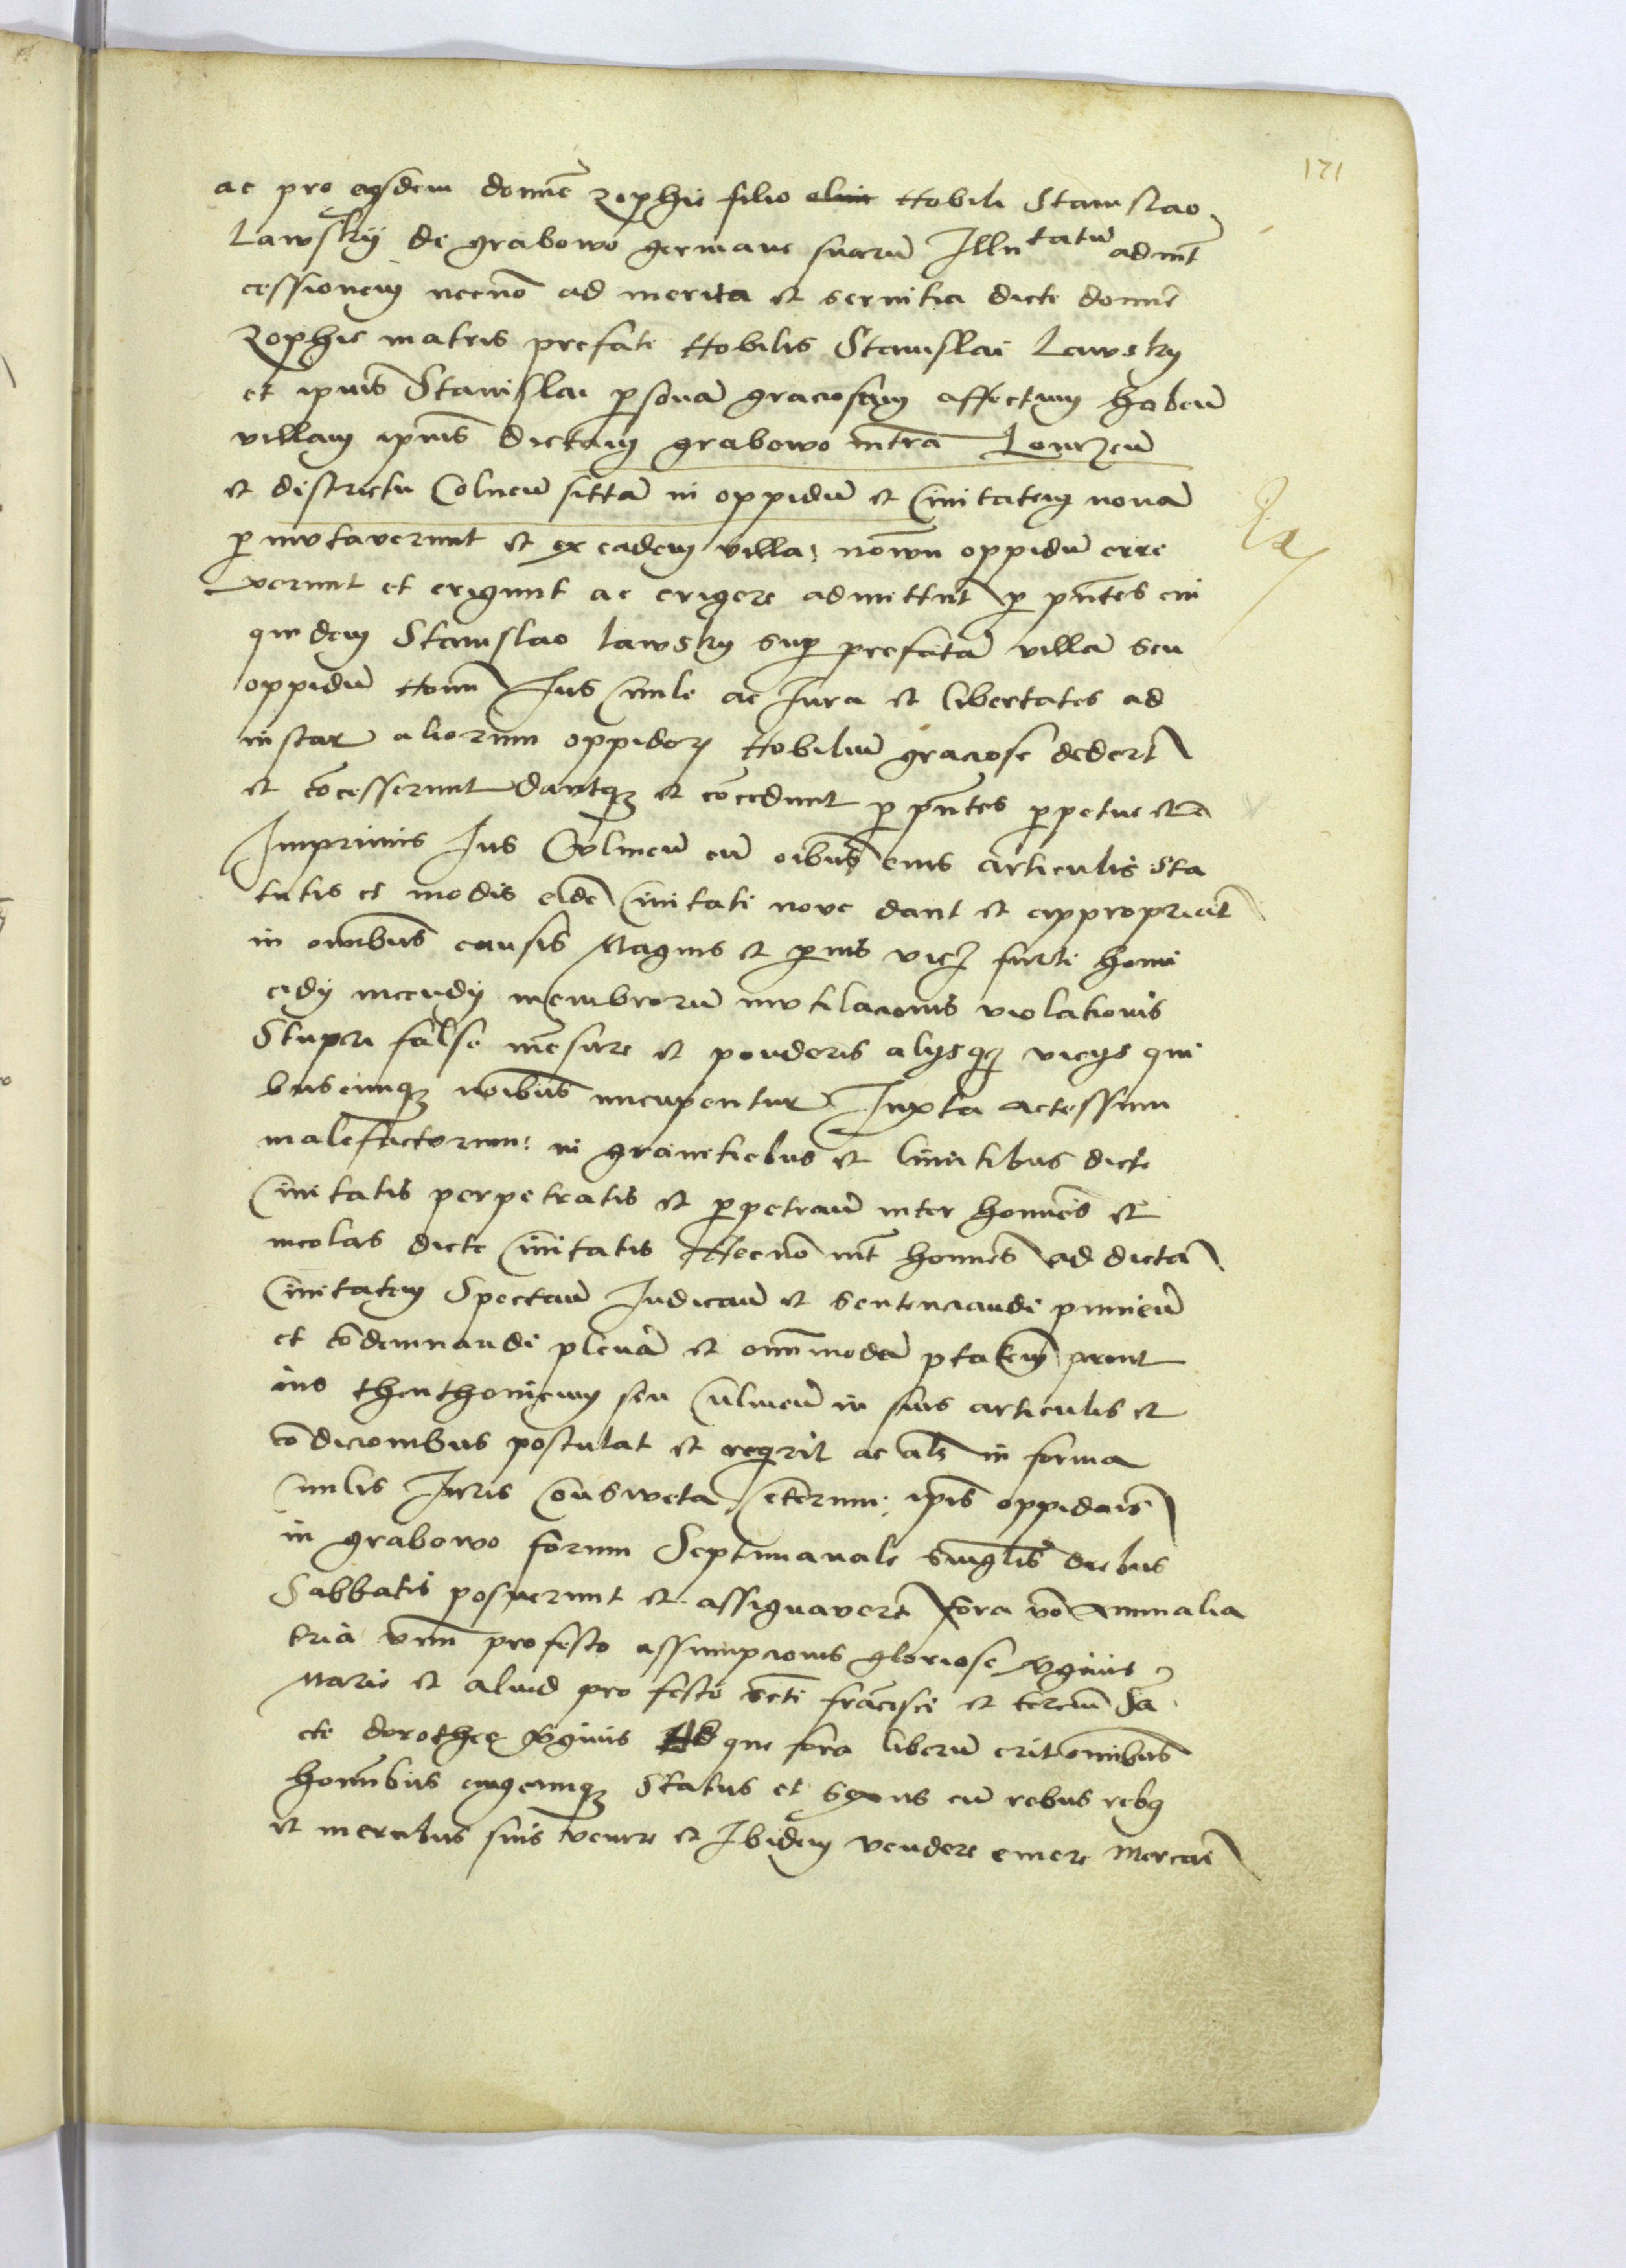 171
ac pro eiusdem domne zophie filio olim Nobili Stanislao
Lawskÿ de grabowo germane suaru Illu tatu ad int
cessionem necno ad merita et servitia dicte domne
zophie matris prefati Nobilis Stanislai Lawsky
et ipius Stanislai psona graciosam affectum habeñ
villam ipius dictam grabowo intra Lomzeñ
et districtu Colneñ sitta in oppidu et Civitatem nova
pmutaverunt et ex eadem villa novum oppidu erre
xerunt et erigunt ac erigere admittnt p pntes cui
quidem Stanislao lawsky sup prefata villa seu
oppidu Novu Jus Civile ac Jura et libertates ad
instar aliorum oppidor Nobiliu graciose dedert
et cocesserunt dantq et cocedunt p pntes ppetue et
Imprimis Jus Culmeñ cu oibus eius articulis Sta
tutis et modis eide Civitati nove dant et appropriat
in omibus causis Magnis et pvis vicz furti homi
cidÿ incendÿ membroru mutilacionis violationis
Stupri false mesure et ponderis alÿsq vicÿs qui
buscumq noibus nucupentur Juxta
malefactorum in granitiebus et limitibus dicte
Civitatis perpetratis et ppetrañ inter homines et
incolas dicte Civitatis Necno int homines ad dicta
Civitatem Spectañ Judicañ et sentenciandi punieñ
et codemnandi plena et omimoda ptatem prout
ius theuthonicum seu Culmeñ in suis articulis et
codicionibus postulat et reqrit ac als in forma
Civilis Juris Consweta Ceterum ipis oppidais
in grabowo forum Septimanale singlis diebus
Sabbatis posuerunt et assignavert fora vo Annualia
tria vnu profesto assumpcionis gloriose vginis
Marie et aliud pro festo scti fracisci et terciu Sa
cte dorothee vginis Ad que fora liberu erit omnibus
hominbus cuiuscumq Status et sexus cu rebus rebq
et mercibus suis venire et Ibidem vendere emere Mercari